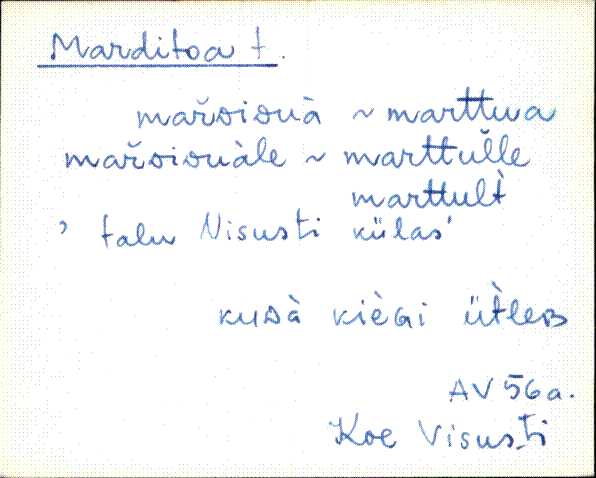 Marditoa t.
mařᴅiᴅuà ~ marttua
mařᴅiᴅuàle ~ marttul̆le
marttult̀
' talu Visusti külas'
kuᴅà kièɢi üt̀leʙ
AV 56a.
Koe Visusti